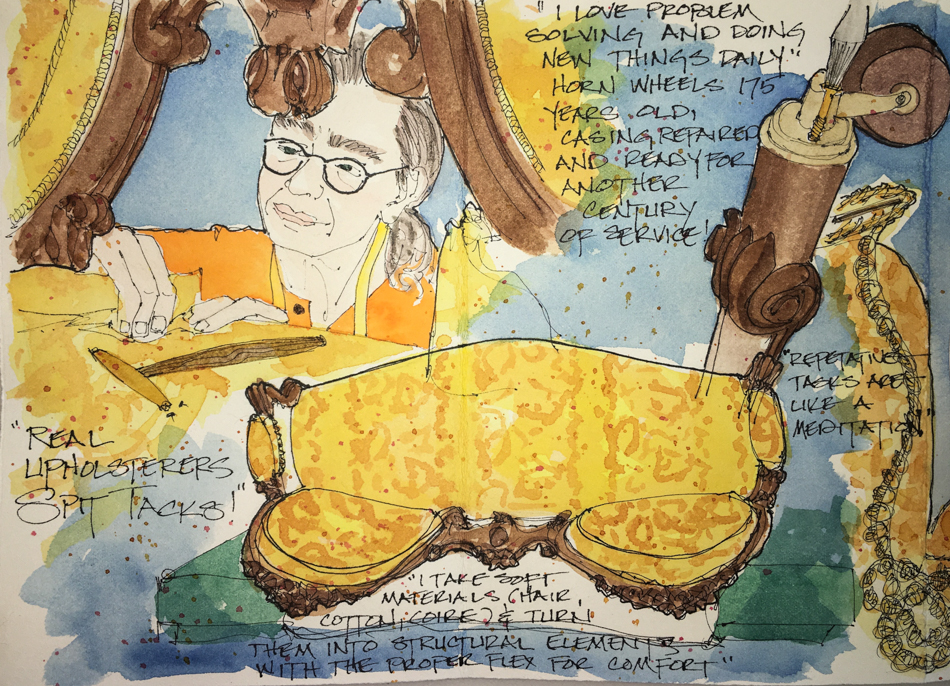 "I LOVE PROBLEM
SOLVING AND DOING
NEW THINGS DAILY."
HORN WHEELS 175
YEARS OLD,
CASING REPAIRED
AND READY FOR
ANOTHER
CENTURY
OF SERVICE!
"REPETATIVE
TASKS ARE
LIKE A
MEDITATION"
"REAL
UPHOLSTERERS
SPIT TACKS!"
"I TAKE SOFT
MATERIALS (HAIR
COTTON, COIRE) & TURN
THEM INTO STRUCTURAL ELEMENTS
WITH THE PROPER FLEX FOR COMFORT"